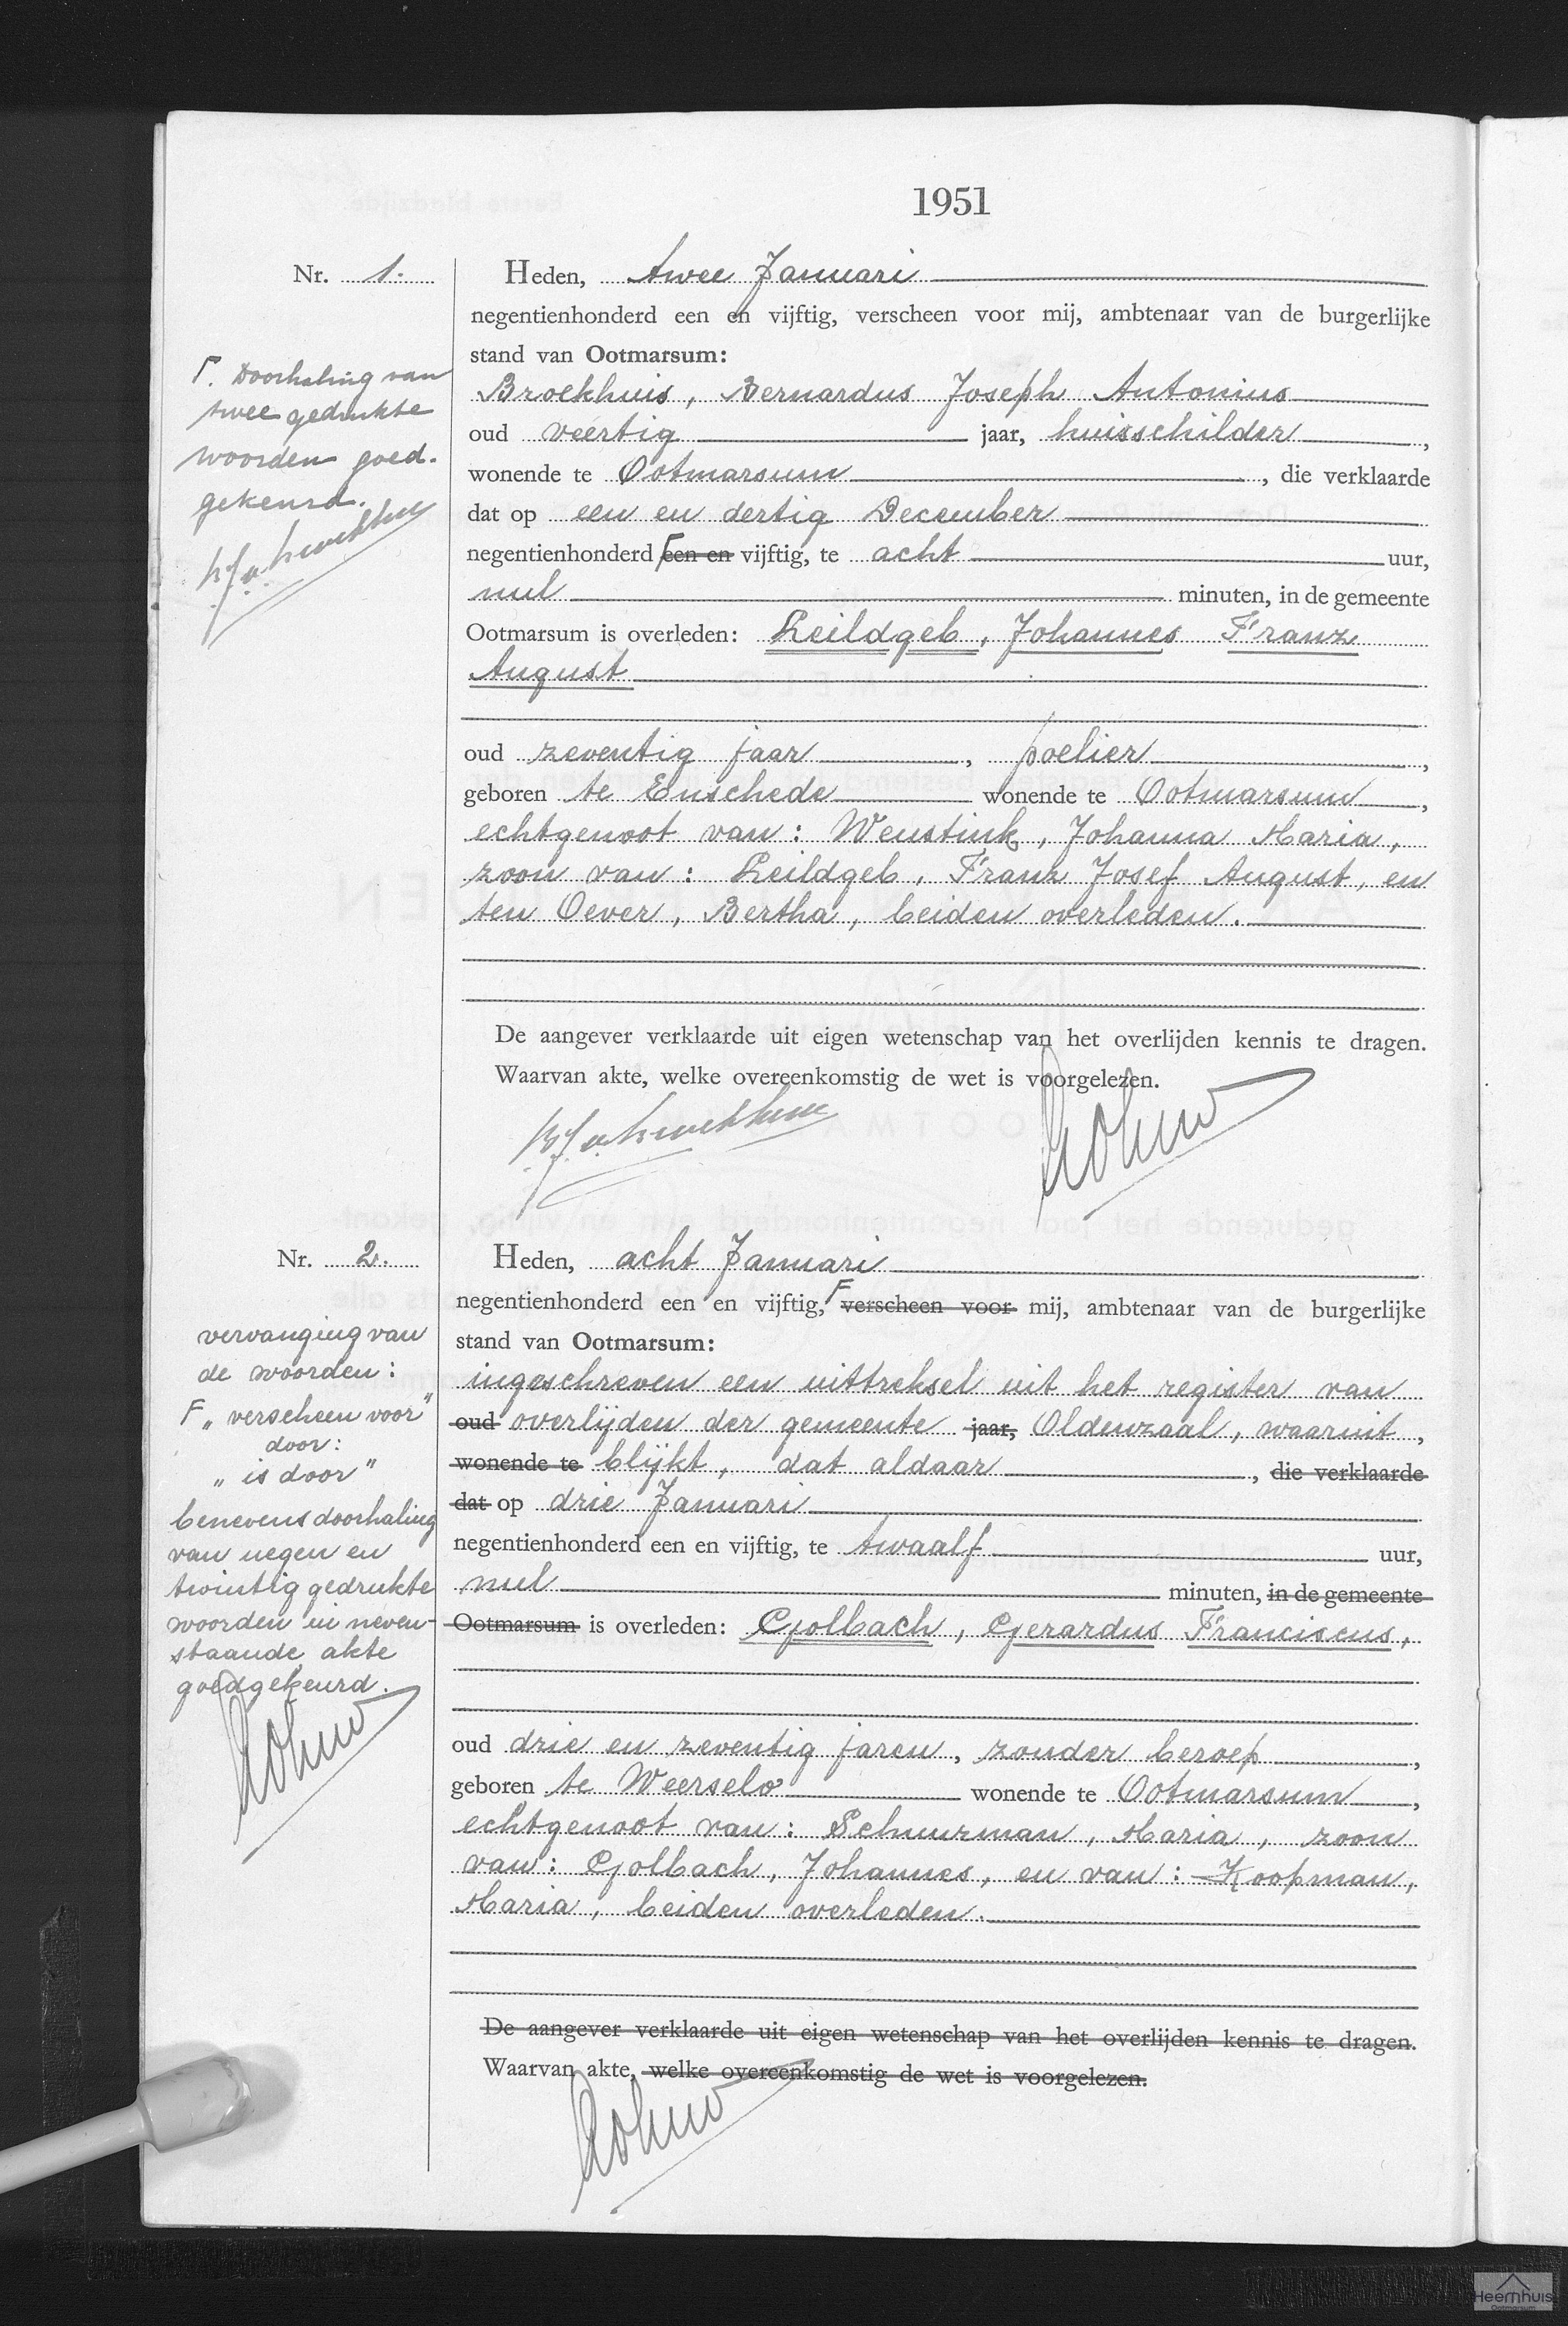 1951
Nr. 1.
Heden, twee Januari
negentienhonderd een en vijftig, verscheen voor mij, ambtenaar van de burgerlijke
stand van Ootmarsum:
Γ. Doorhaling van
twee gedrukte
woorden goed-
gekeurd.
Broekhuis, Bernardus Joseph Antonius
oud veertig jaar, huisschilder,
wonende te Ootmarsum, die verklaarde
dat op een en dertig December
negentienhonderd Γ een en vijftig, te acht uur,
nul minuten, in de gemeente
Ootmarsum is overleden: Leildgeb, Johannes Franz
August
oud zeventig jaar, poelier,
geboren te Enschede wonende te Ootmarsum,
echtgenoot van: Weustink, Johanna Maria,
zoon van: Leildgeb, Franz Josef August, en
ten Oever, Bertha, beiden overleden.
De aangever verklaarde uit eigen wetenschap van het overlijden kennis te dragen.
Waarvan akte, welke overeenkomstig de wet is voorgelezen.
Nr. 2.
Heden, acht Januari
negentienhonderd een en vijftig, F verscheen voor mij, ambtenaar van de burgerlijke
stand van Ootmarsum:
vervanging van
de woorden:
F „verscheen voor"
door:
„is door"
benevens doorhaling
van negen en
twintig gedrukte
woorden in neven-
staande akte
goedgekeurd.
ingeschreven een uittreksel uit het register van
oud overlijden der gemeente jaar, Oldenzaal, waaruit,
wonende te blijkt, dat aldaar, die verklaarde
dat op drie Januari
negentienhonderd een en vijftig, te twaalf uur,
nul minuten, in de gemeente
Ootmarsum is overleden: Golbach, Gerardus Franciscus,
oud drie en zeventig jaren, zonder beroep,
geboren te Weerselo wonende te Ootmarsum,
echtgenoot van: Schuurman, Maria, zoon
van: Golbach, Johannes, en van: Koopman,
Maria, beiden overleden.
De aangever verklaarde uit eigen wetenschap van het overlijden kennis te dragen.
Waarvan akte, welke overeenkomstig de wet is voorgelezen.
Heemhuis
Ootmarsum